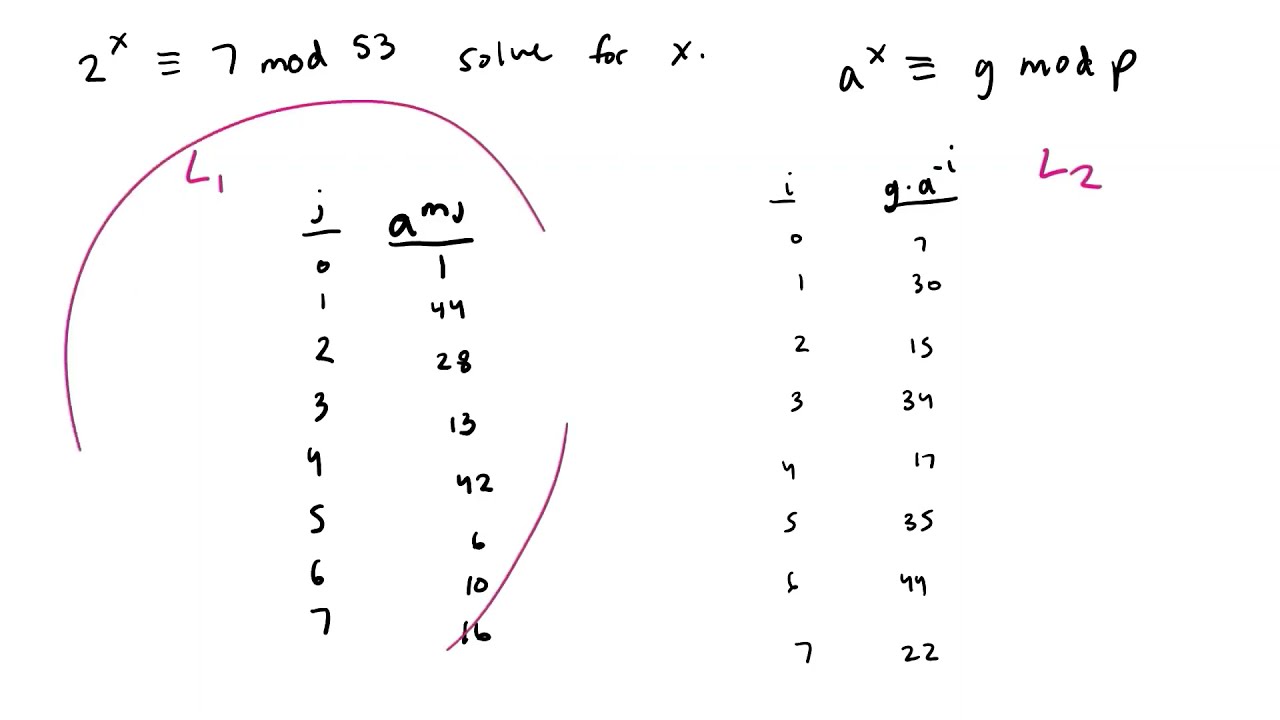 2^x ≡ 7 mod 53 solve for x.
a^x ≡ g mod p
L1
j a^mj
0 1
1 44
2 28
3 13
4 42
5 6
6 10
7 16
L2
i g·a^-i
0 7
1 30
2 15
3 34
4 17
5 35
6 44
7 22